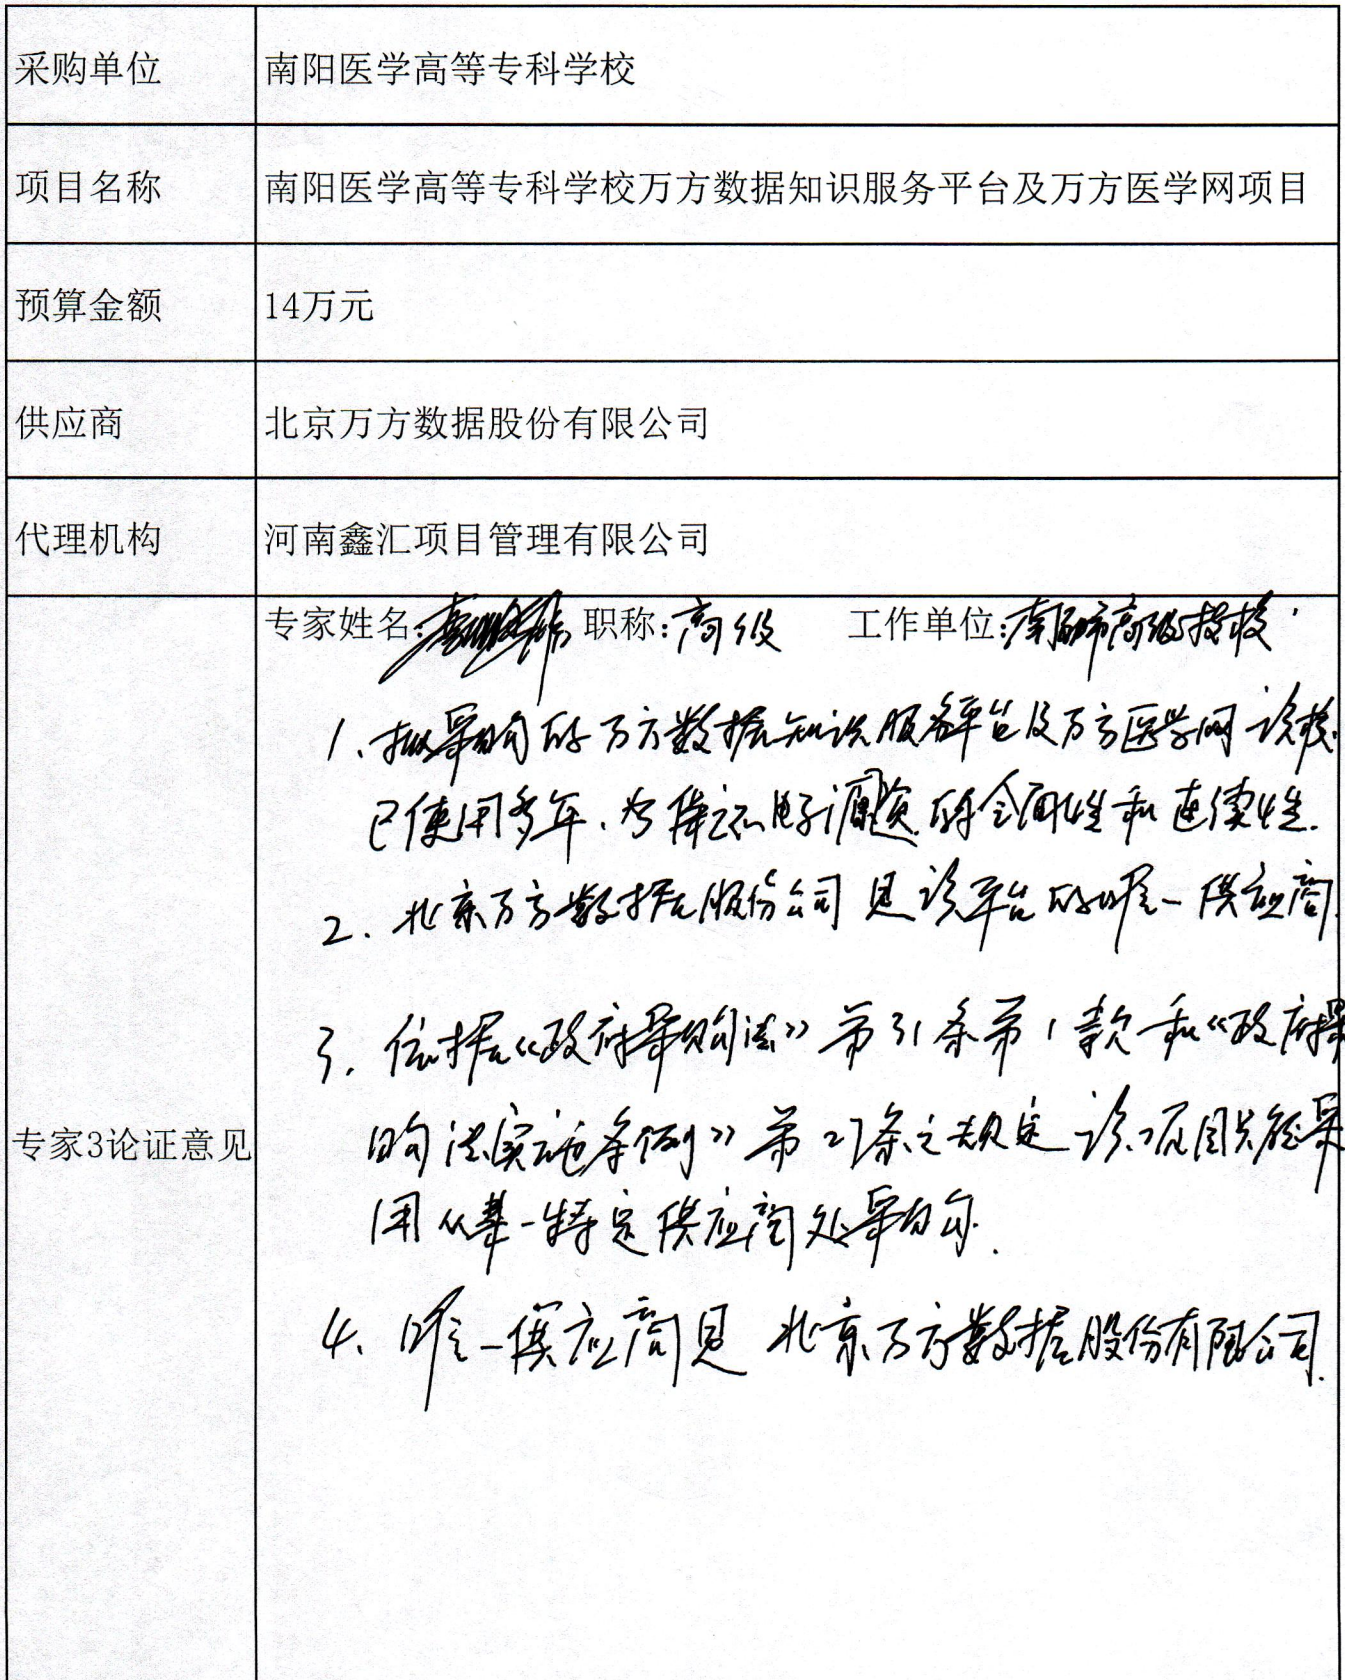 采购单位 南阳医学高等专科学校
项目名称 南阳医学高等专科学校万方数据知识服务平台及万方医学网项目
预算金额 14万元
供应商 北京万方数据股份有限公司
代理机构 河南鑫汇项目管理有限公司
专家姓名: 职称:高级 工作单位:南阳市高级技校
1、拟采购的万方数据知识服务平台及万方医学网该校
已使用多年、为保证电子资源的全面性和连续性.
2、北京万方数据股份公司是该平台的唯一供应商.
3、依据《政府采购法》第31条第1款和《政府采
专家3论证意见
购法实施条例》第27条之规定该项目只能采
用从单一特定供应商处采购.
4、唯一供应商是 北京万方数据股份有限公司.